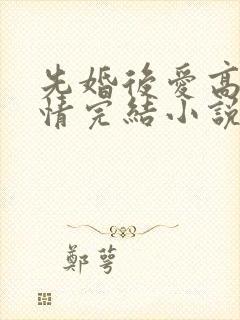 先婚後愛高
情完結小說
鄭萼